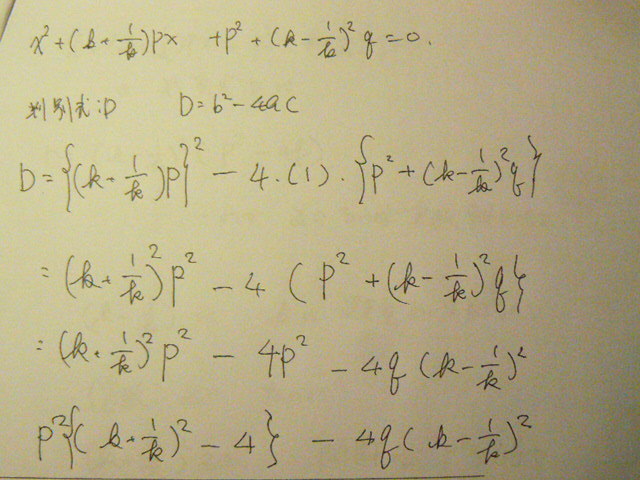 x²+(k+1/k)px +p²+(k-1/k)²q=0.
判別式:D D=b²-4ac
D={(k+1/k)p}²-4・(1)・{p²+(k-1/k)²q}
=(k+1/k)²p²-4(p²+(k-1/k)²q}
=(k+1/k)²p²-4p²-4q(k-1/k)²
p²{(k+1/k)²-4}-4q(k-1/k)²